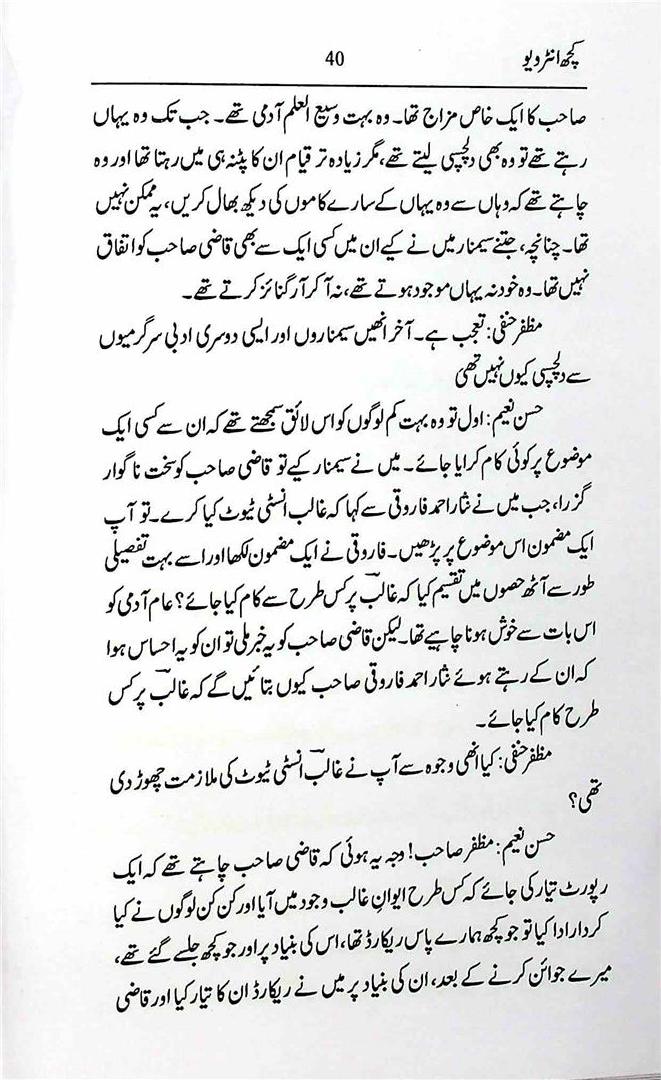 کچھ انٹرویو 40
صاحب کا ایک خاص مزاج تھا۔ وہ بہت وسیع العلم آدمی تھے۔ جب تک وہ یہاں
رہتے تھے تو وہ بھی دلچسپی لیتے تھے، مگر زیادہ تر قیام ان کا پٹنہ ہی میں رہتا تھا اور وہ
چاہتے تھے کہ وہاں سے وہ یہاں کے سارے کاموں کی دیکھ بھال کریں، یہ ممکن نہیں
تھا۔ چنانچہ، جتنے سیمنار میں نے کیے ان میں کسی ایک سے بھی قاضی صاحب کو اتفاق
نہیں تھا۔ وہ خود نہ یہاں موجود ہوتے تھے، نہ آ کر آرگنائز کرتے تھے۔
مظفر حنفی: تعجب ہے۔ آخر انھیں سیمناروں اور ایسی دوسری ادبی سرگرمیوں
سے دلچسپی کیوں نہیں تھی
حسن نعیم: اول تو وہ بہت کم لوگوں کو اس لائق سمجھتے تھے کہ ان سے کسی ایک
موضوع پر کوئی کام کرایا جائے۔ میں نے سیمنار کیے تو قاضی صاحب کو سخت ناگوار
گزرا، جب میں نے نثار احمد فاروقی سے کہا کہ غالب انسٹی ٹیوٹ کیا کرے۔ تو آپ
ایک مضمون اس موضوع پر پڑھیں۔ فاروقی نے ایک مضمون لکھا اور اسے بہت تفصیلی
طور سے آٹھ حصوں میں تقسیم کیا کہ غالبؔ پر کس طرح سے کام کیا جائے؟ عام آدمی کو
اس بات سے خوش ہونا چاہیے تھا۔ لیکن قاضی صاحب کو یہ خبر ملی تو ان کو یہ احساس ہوا
کہ ان کے رہتے ہوئے نثار احمد فاروقی صاحب کیوں بتائیں گے کہ غالبؔ پر کس
طرح کام کیا جائے۔
مظفر حنفی: کیا انھی وجوہ سے آپ نے غالبؔ انسٹی ٹیوٹ کی ملازمت چھوڑ دی
تھی؟
حسن نعیم: مظفر صاحب! وجہ یہ ہوئی کہ قاضی صاحب چاہتے تھے کہ ایک
رپورٹ تیار کی جائے کہ کس طرح ایوانِ غالب وجود میں آیا اور کن کن لوگوں نے کیا
کردار ادا کیا تو جو کچھ ہمارے پاس ریکارڈ تھا، اس کی بنیاد پر اور جو کچھ جلسے گئے تھے،
میرے جوائن کرنے کے بعد، ان کی بنیاد پر میں نے ریکارڈ ان کا تیار کیا اور قاضی